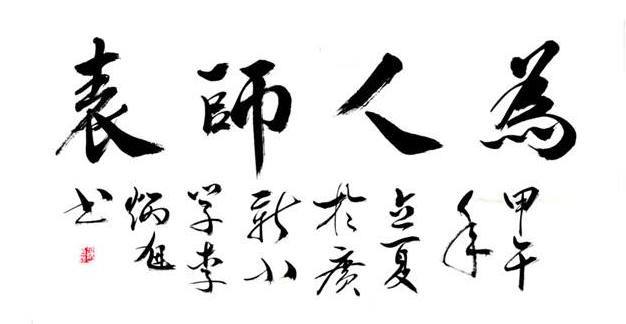 為人師表
甲午
年
立夏
於廣
新小
学李
炳旭
书